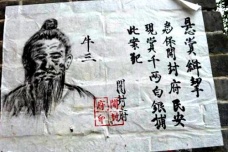 懸賞緝拏
為保開封府民安
現賞千两白銀捕
此案犯
開封府
牛三